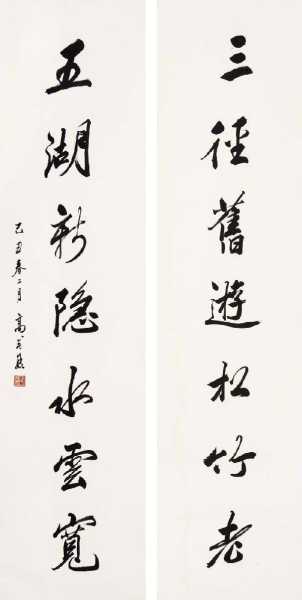 三徑舊遊松竹老
五湖新隐水雲寬
己丑春二月高式熊